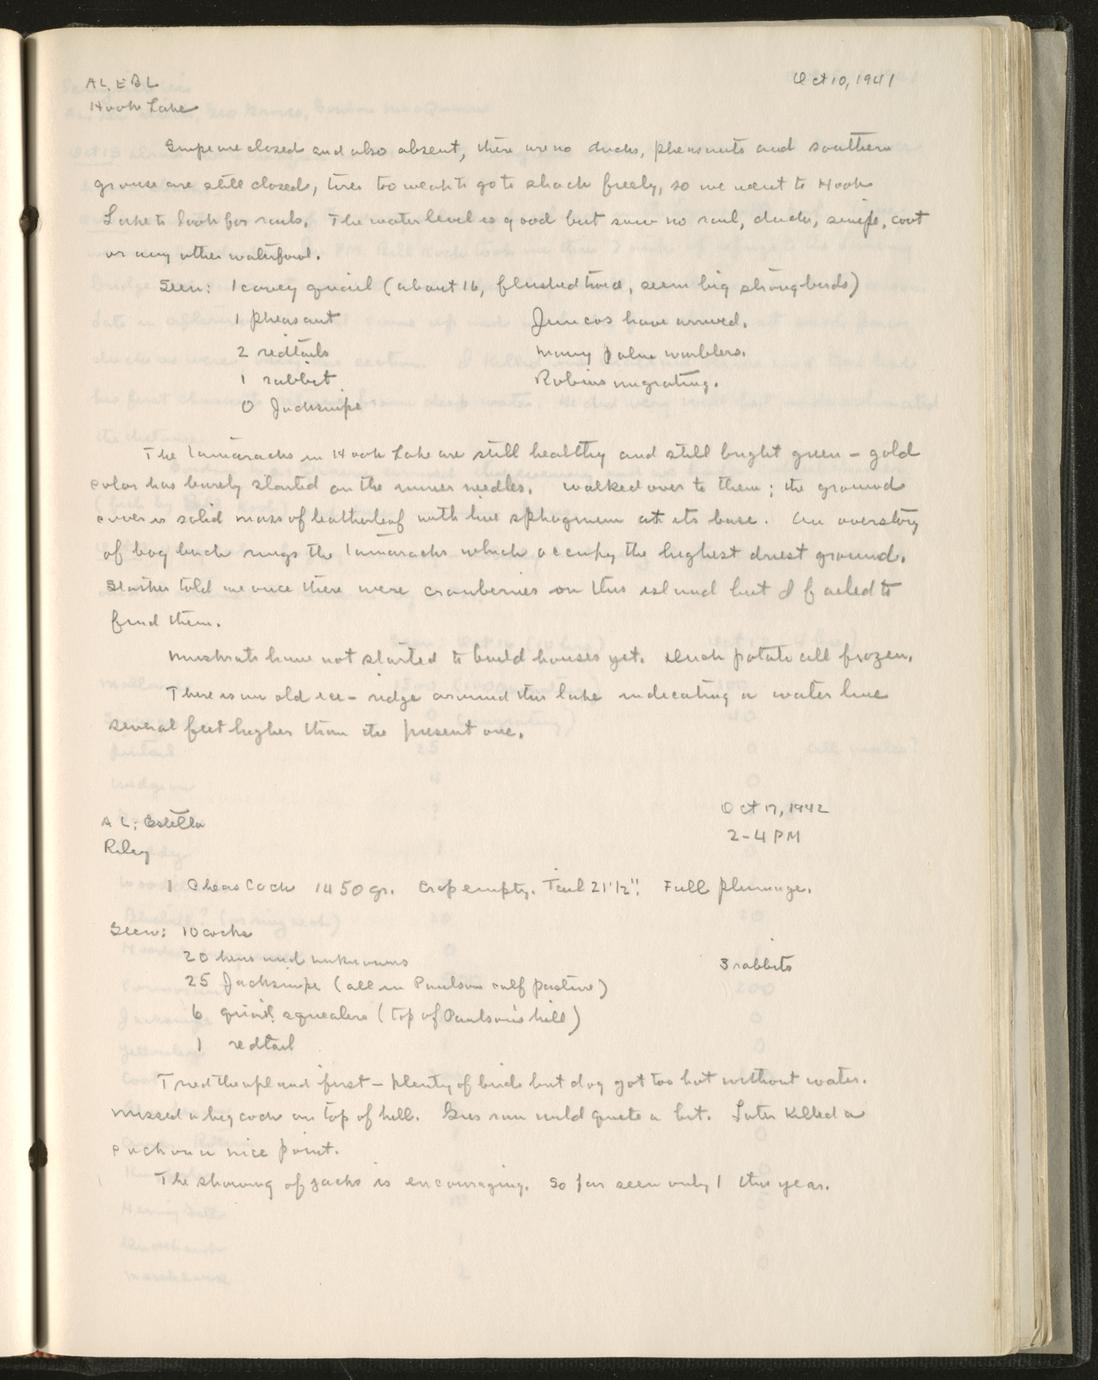 AL, EBL
Oct 10, 1941
Hook Lake
Snipe are closed and also absent, there are no ducks, pheasants and southern
grouse are still closed, tires too weak to go to shack freely, so we went to Hook
Lake to look for rails. The water level is good but saw no rail, ducks, snipe, coot
or any other waterfowl.
Seen: 1 covey quail (about 16, flushed twice, seem big strong birds)
1 pheasant
Juncos have arrived.
2 redtails
Many palm warblers.
1 rabbit
Robins migrating.
0 Jacksnipe
The tamaracks in Hook Lake are still healthy and still bright green - gold
color has barely started on the inner needles. Walked over to them; the ground
cover is solid mass of leatherleaf with live sphagnum at its base. An overstory
of bog birch rings the tamaracks which occupy the highest driest ground.
told me once there were cranberries on this island but I failed to
find them.
Muskrats have not started to build houses yet. Duck potato all frozen.
There is an old ice-ridge around this lake indicating a water line
several feet higher than the present one.
Oct 17, 1942
AL, Estella
2-4 PM
Riley
1 Pheas Cock 1450 gr. Crop empty. Tail 21 1/2". Full plumage.
Seen: 10 cocks
20 hens and unknowns
3 rabbits
25 Jacksnipe (all in Paulson calf pasture)
6 quail squealers (top of Paulson's hill)
1 redtail
Tried the upland first - plenty of birds but dog got too hot without water.
Missed a big cock on top of hill. Gus ran wild quite a bit. Later killed a
cock on a nice point.
The showing of jacks is encouraging. So far seen only 1 this year.